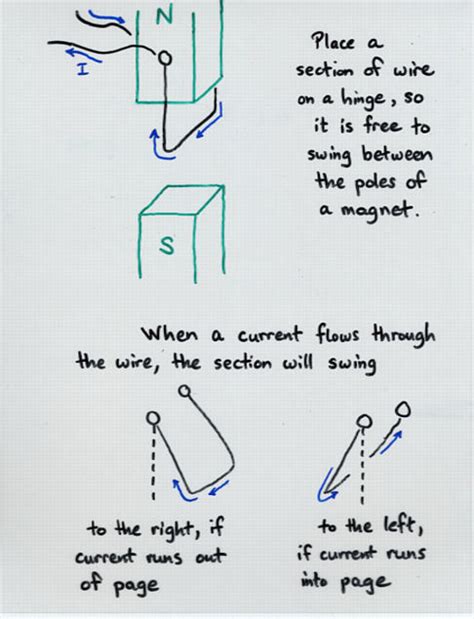 N
I
Place a
section of wire
on a hinge, so
it is free to
swing between
the poles of
a magnet.
S
When a current flows through
the wire, the section will swing
to the right, if
current runs out
of page
to the left,
if current runs
into page